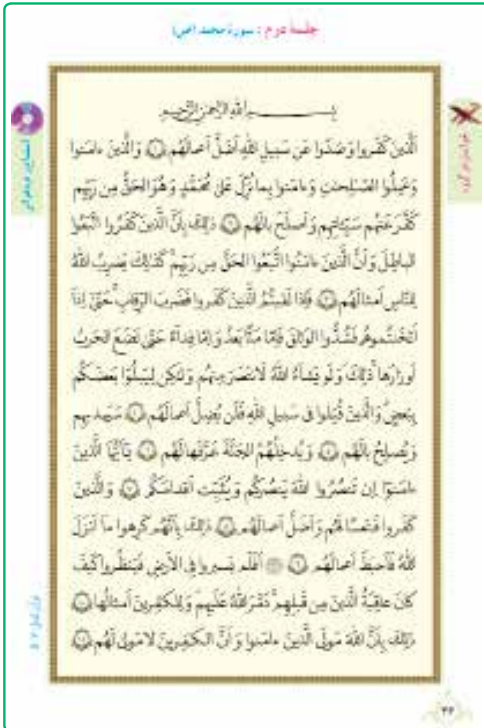 جلسهٔ دوم : سورهٔ محمد (ص)
بسم الله الرحمن الرحيم
الَّذينَ كَفَروا وَصَدّوا عَن سَبيلِ اللّٰهِ اَضَلَّ اَعمالَهُم ١ وَالَّذينَ ءامَنوا
وَعَمِلُوا الصّٰلِحٰتِ وَءامَنوا بِما نُزِّلَ عَلىٰ مُحَمَّدٍ وَهُوَ الحَقُّ مِن رَبِّهِم
كَفَّرَ عَنهُم سَيِّئاتِهِم وَاَصلَحَ بالَهُم ٢ ذٰلِكَ بِاَنَّ الَّذينَ كَفَرُوا اتَّبَعُوا
الباطِلَ وَاَنَّ الَّذينَ ءامَنُوا اتَّبَعُوا الحَقَّ مِن رَبِّهِم كَذٰلِكَ يَضرِبُ اللّٰهُ
لِلنّاسِ اَمثالَهُم ٣ فَاِذا لَقيتُمُ الَّذينَ كَفَروا فَضَربَ الرِّقابِ حَتّىٰ اِذا
اَثخَنتُموهُم فَشُدُّوا الوَثاقَ فَاِمّا مَنًّا بَعدُ وَاِمّا فِداءً حَتّىٰ تَضَعَ الحَربُ
اَوزارَها ذٰلِكَ وَلَو يَشاءُ اللّٰهُ لَانتَصَرَ مِنهُم وَلٰكِن لِيَبلُوَا بَعضَكُم
بِبَعضٍ وَالَّذينَ قُتِلوا فى سَبيلِ اللّٰهِ فَلَن يُضِلَّ اَعمالَهُم ٤ سَيَهديهِم
وَيُصلِحُ بالَهُم ٥ وَيُدخِلُهُمُ الجَنَّةَ عَرَّفَها لَهُم ٦ يٰاَيُّهَا الَّذينَ
ءامَنوا اِن تَنصُرُوا اللّٰهَ يَنصُركُم وَيُثَبِّت اَقدامَكُم ٧ وَالَّذينَ
كَفَروا فَتَعسًا لَهُم وَاَضَلَّ اَعمالَهُم ٨ ذٰلِكَ بِاَنَّهُم كَرِهوا ما اَنزَلَ
اللّٰهُ فَاَحبَطَ اَعمالَهُم ٩ اَفَلَم يَسيروا فِى الاَرضِ فَيَنظُروا كَيفَ
كانَ عاقِبَةُ الَّذينَ مِن قَبلِهِم دَمَّرَ اللّٰهُ عَلَيهِم وَلِلكٰفِرينَ اَمثالُها ١٠
ذٰلِكَ بِاَنَّ اللّٰهَ مَولَى الَّذينَ ءامَنوا وَاَنَّ الكٰفِرينَ لا مَولىٰ لَهُم ١١